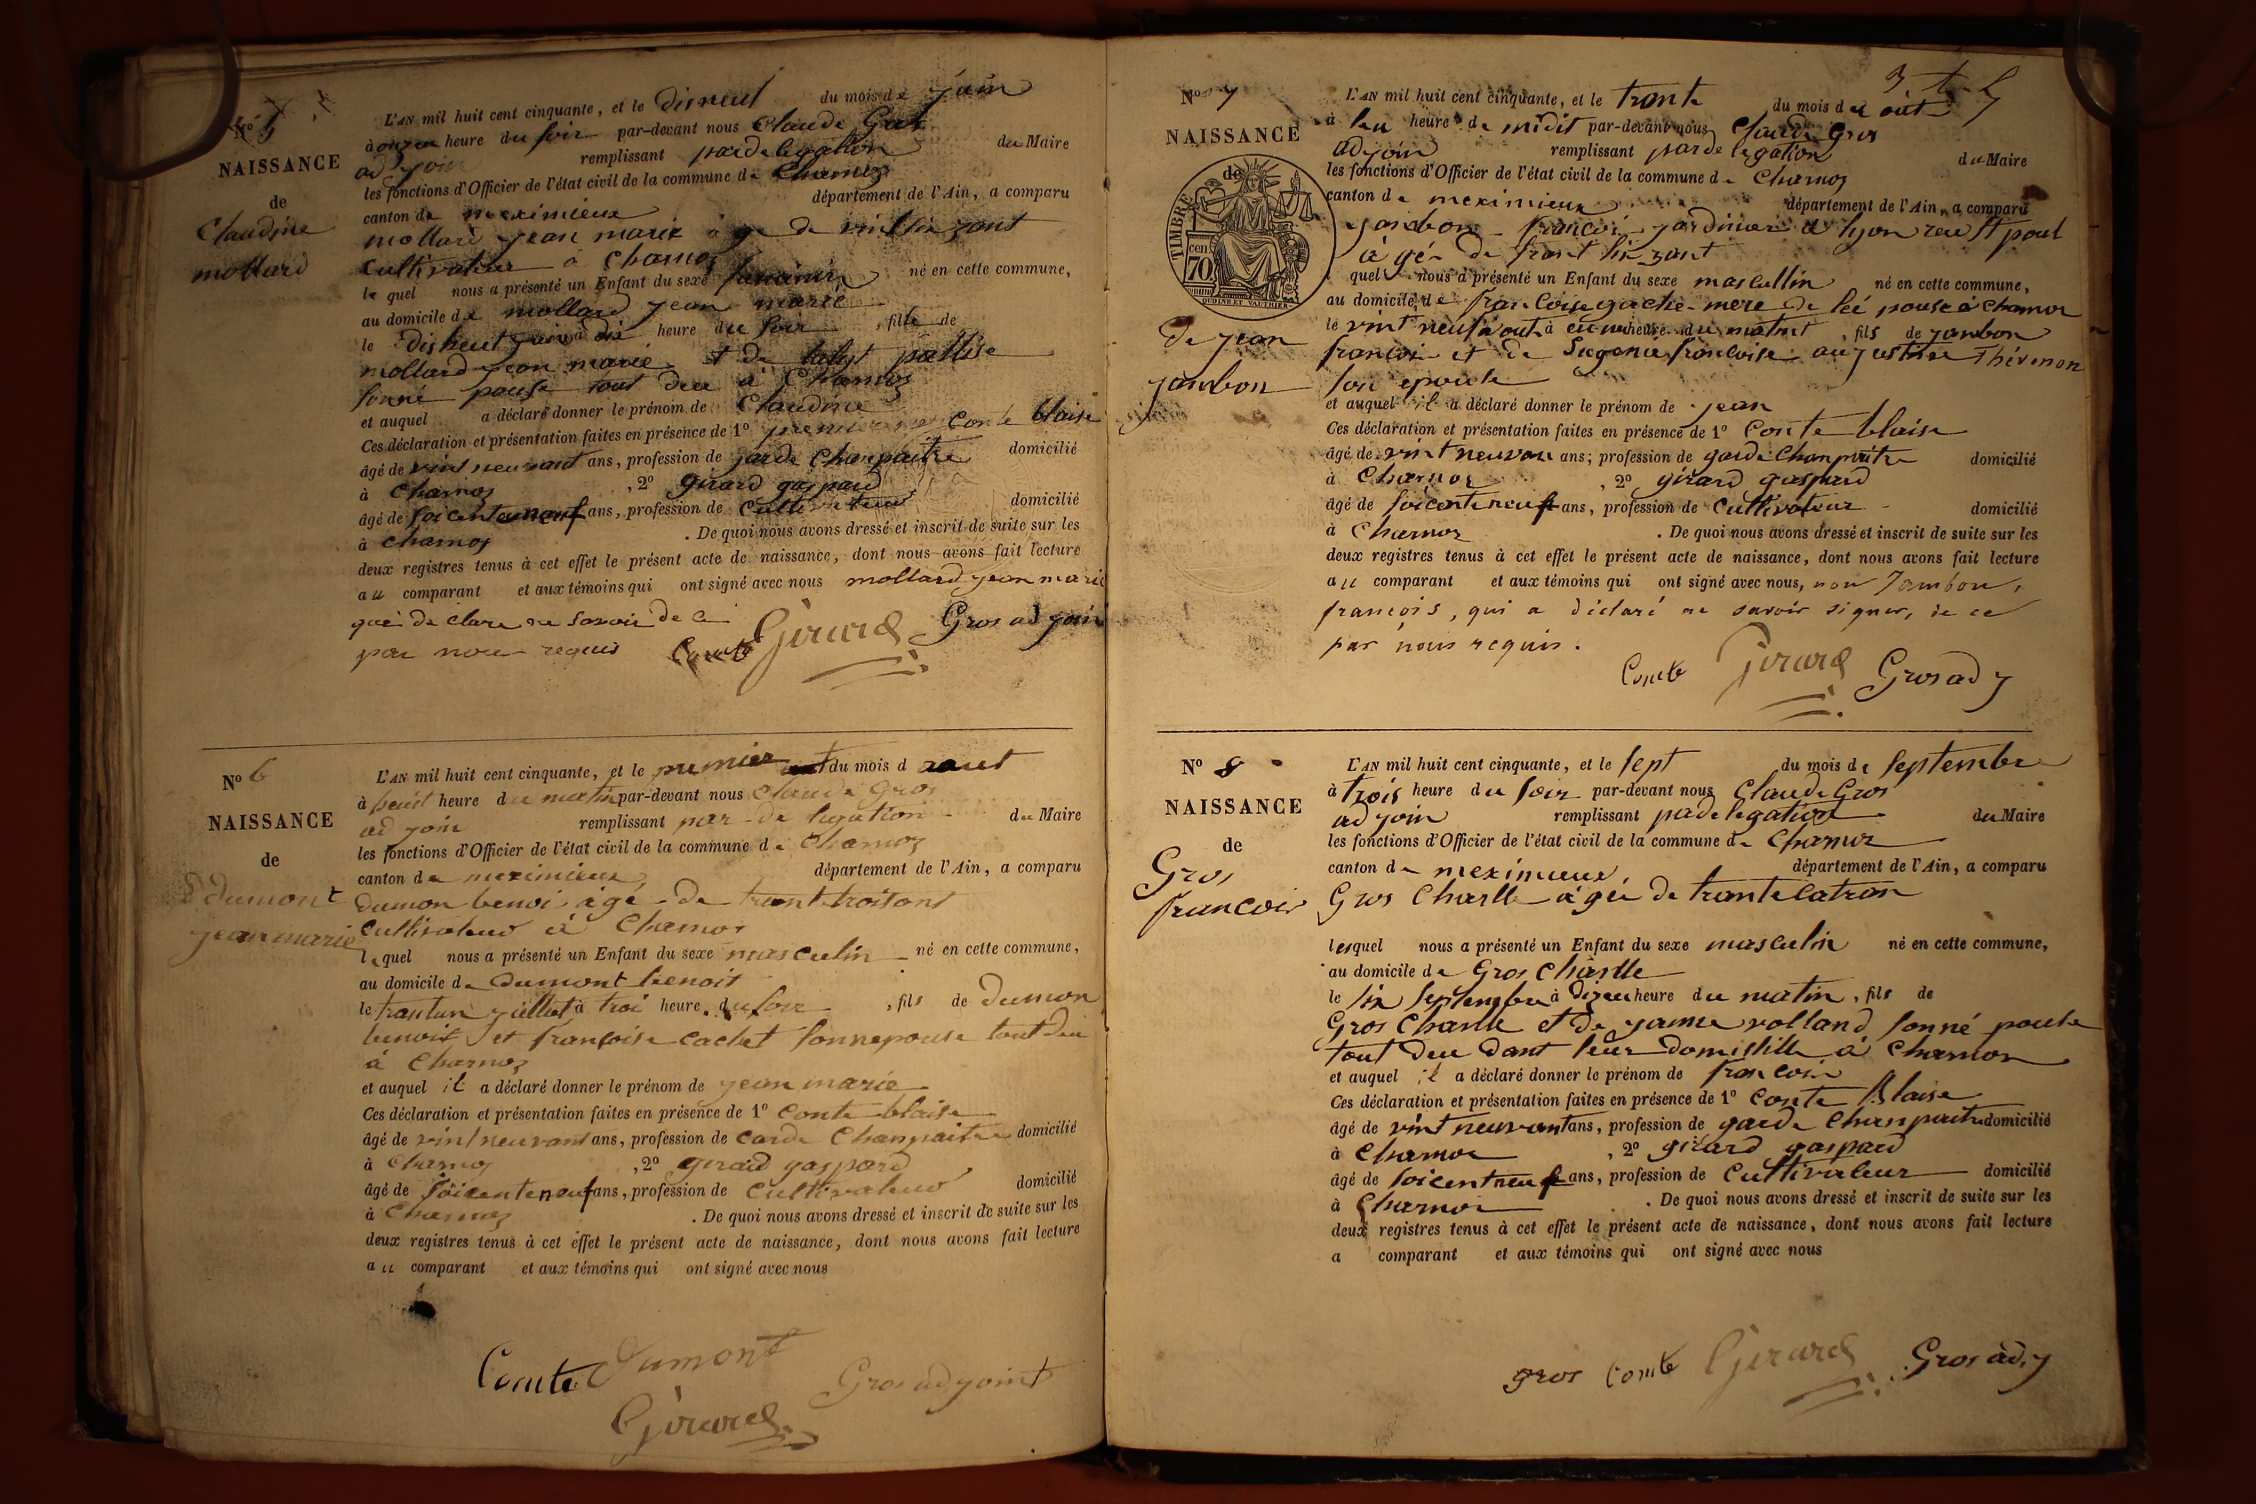 N° 5
NAISSANCE
de
Claudine
mollard
L'AN mil huit cent cinquante, et le disneuf du mois de juin
à onzeu heure du soir par-devant nous Claude Gros
adjoin remplissant pardelegation du Maire
les fonctions d'Officier de l'état civil de la commune de Charnoz
canton de meximieux département de l'Ain, a comparu
mollard jean marie âge de vintsinzant
cultivateur à Charnoz
le quel nous a présenté un Enfant du sexe né en cette commune,
au domicile de mollard jean marie
le dishuit juin à dix heure du soir, fille de
mollard jean marie et de
sonné pouse tout deu à Charnoz
et auquel a déclaré donner le prénom de Claudine
Ces déclaration et présentation faites en présence de 1° Conte blaise
âgé de vint neuvant ans, profession de garde Chanpaitre domicilié
à Charnoz, 2° girard gaspard
âgé de soicenteneuf ans, profession de cultivateur domicilié
à Charnoz. De quoi nous avons dressé et inscrit de suite sur les
deux registres tenus à cet effet le présent acte de naissance, dont nous avons fait lecture
au comparant et aux témoins qui ont signé avec nous mollard jean marie
que de clare ne savoir de ce
par nous requis Comte Girard Gros adjoin
N° 6
NAISSANCE
de
dumont
jean marie
L'AN mil huit cent cinquante, et le premier du mois d aout
à heure du matin par-devant nous Claude Gros
adjoin remplissant par de legation du Maire
les fonctions d'Officier de l'état civil de la commune de Charnoz
canton de meximieux département de l'Ain, a comparu
dumon benoi âgé de trant troitant
Cultivateur à Charnoz
lequel nous a présenté un Enfant du sexe masculin né en cette commune,
au domicile de dumont benoit
le trantun juillet à troi heure du soir, fils de dumon
benoit et françoise cachet sonnepouse tout deu
à Charnoz
et auquel il a déclaré donner le prénom de jean marie
Ces déclaration et présentation faites en présence de 1° Conte blaise
âgé de vint neuvant ans, profession de carde Chanpaitre domicilié
à Charnoz, 2° girard gaspard
âgé de soicenteneuf ans, profession de Cultivateur domicilié
à Charnoz. De quoi nous avons dressé et inscrit de suite sur les
deux registres tenus à cet effet le présent acte de naissance, dont nous avons fait lecture
au comparant et aux témoins qui ont signé avec nous
Comte Dumont
Girard Gros adjoint
N° 7
NAISSANCE
de
TIMBRE
cen 70
OUDINE ET VAUTHIER
de jean
jambon
L'AN mil huit cent cinquante, et le trante du mois de out
à heure de midit par-devant nous Claude Gros
adjoin remplissant parde legation du Maire
les fonctions d'Officier de l'état civil de la commune de Charnoz
canton de meximieux département de l'Ain, a comparu
jambon françoi jardinier à lyon reu St poul
à gé de trant sin zant
quel nous a présenté un Enfant du sexe mascullin né en cette commune,
au domicile de francoise gache mere de léé pouse à Charnoz
le vint neuf out à heure du matint, fils de jambon
françoi et de Eugenie françoise augustine Thevenon
son epouse
et auquel il a déclaré donner le prénom de jean
Ces déclaration et présentation faites en présence de 1° Conte blaise
âgé de vint neuvan ans; profession de garde Chanpaitre domicilié
à Charnoz, 2° girard gaspard
âgé de soicenteneuf ans, profession de Cultivateur domicilié
à Charnoz. De quoi nous avons dressé et inscrit de suite sur les
deux registres tenus à cet effet le présent acte de naissance, dont nous avons fait lecture
au comparant et aux témoins qui ont signé avec nous, non Jambon,
françois, qui a déclaré ne savoir signer, de ce
par nous requis.
Comte Girard Gros adj
N° 8
NAISSANCE
de
Gros
francois
L'AN mil huit cent cinquante, et le sept du mois de septembre
à trois heure du soir par-devant nous Claude Gros
adjoin remplissant padelegation du Maire
les fonctions d'Officier de l'état civil de la commune de Charnoz
canton de meximieux département de l'Ain, a comparu
Gros Charlle âgée de trantecatran
lequel nous a présenté un Enfant du sexe masculin né en cette commune,
au domicile de Gros Charlle
le six septembre à dizeu heure du matin, fils de
Gros Charlle et de janne rolland sonné pouse
tout deu dant leur domisille à Charnoz
et auquel il a déclaré donner le prénom de francoi
Ces déclaration et présentation faites en présence de 1° Conte Blaise
âgé de vint neuvant ans, profession de garde Chanpaitre domicilié
à Charnoz, 2° girard gaspard
âgé de soicentneuf ans, profession de Cultivateur domicilié
à Charnoz. De quoi nous avons dressé et inscrit de suite sur les
deux registres tenus à cet effet le présent acte de naissance, dont nous avons fait lecture
a comparant et aux témoins qui ont signé avec nous
gros Comte Girard Gros adj